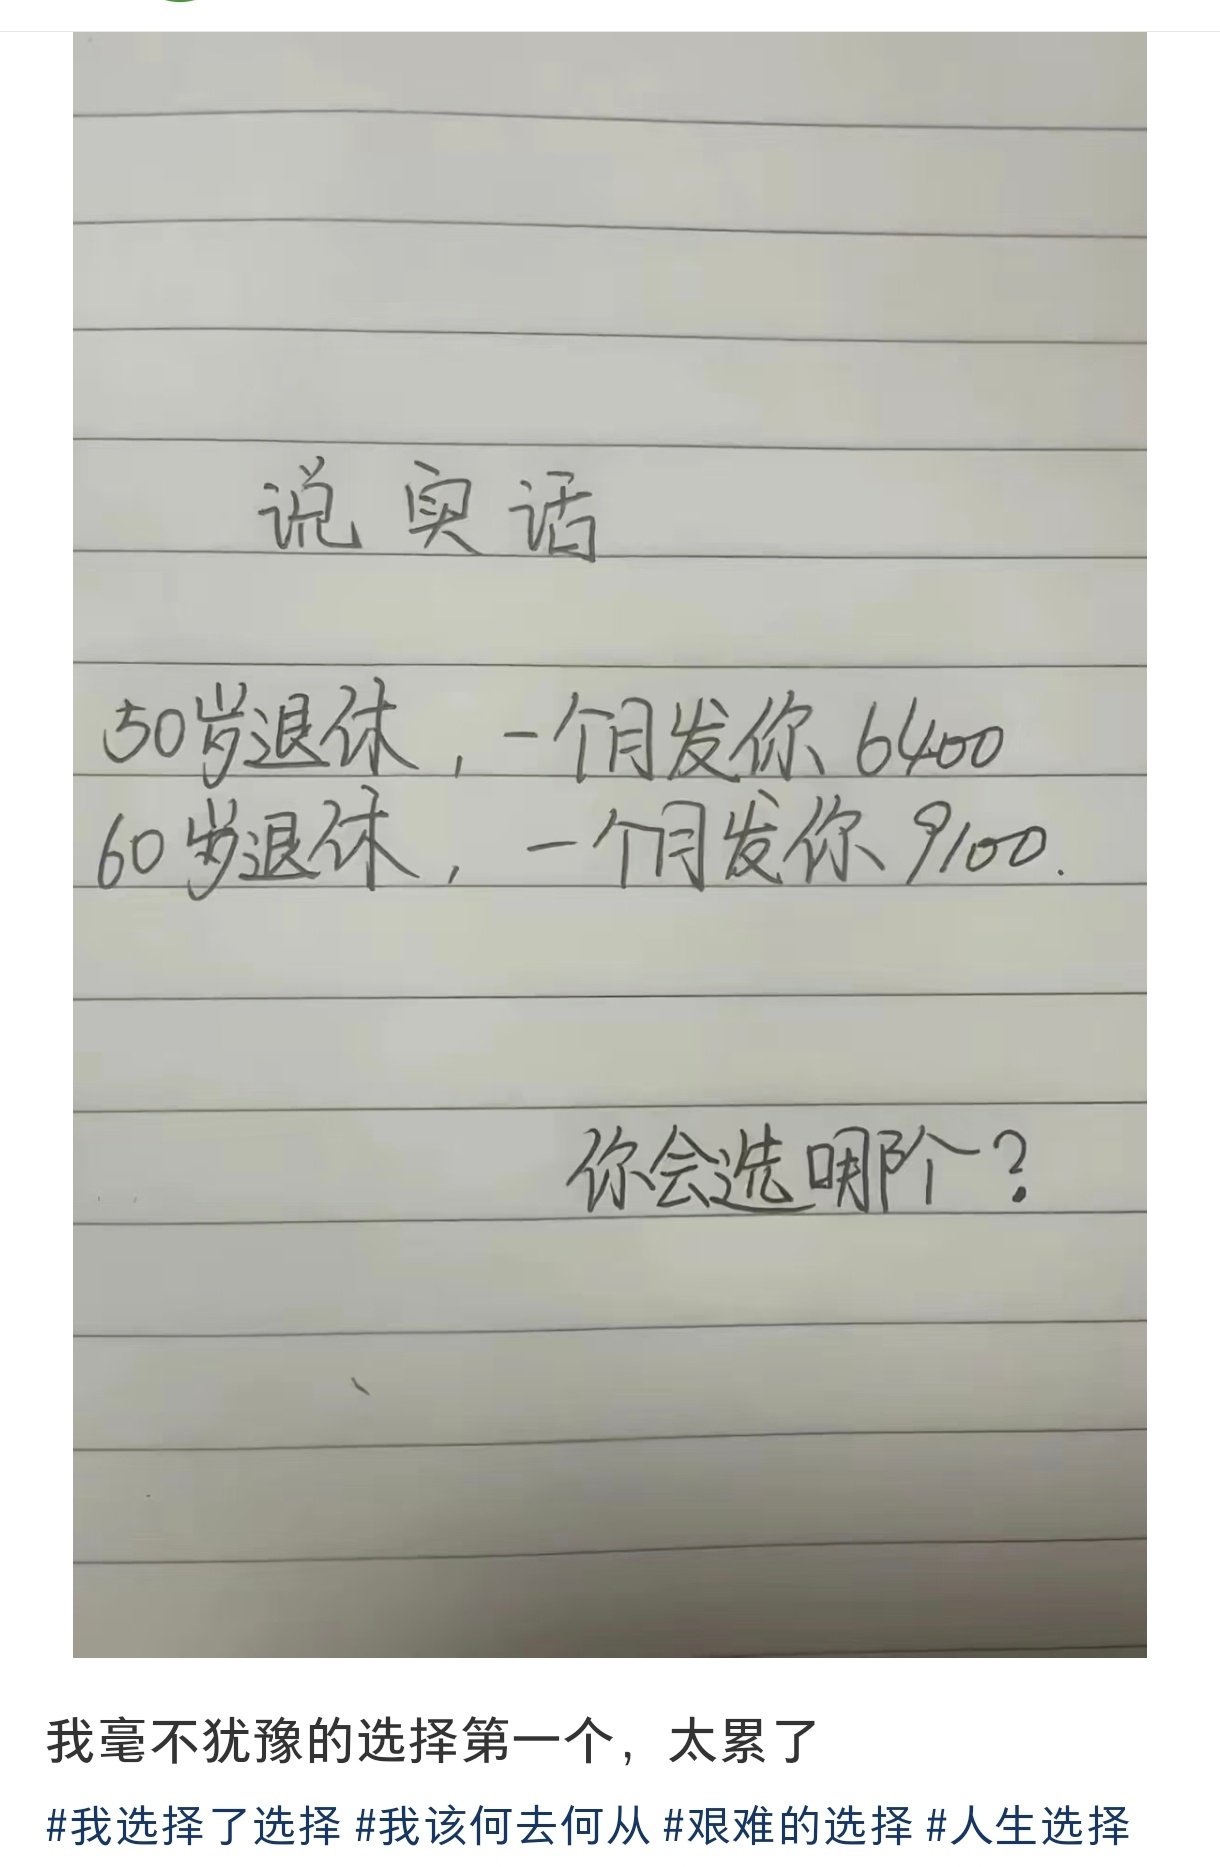 说实话
50岁退休，一个月发你6400
60岁退休，一个月发你9100.
你会选哪个？
我毫不犹豫的选择第一个，太累了
#我选择了选择 #我该何去何从 #艰难的选择 #人生选择